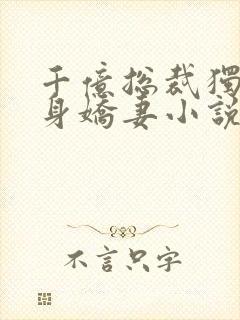 千億總裁獨
身嬌妻小說
不言只字